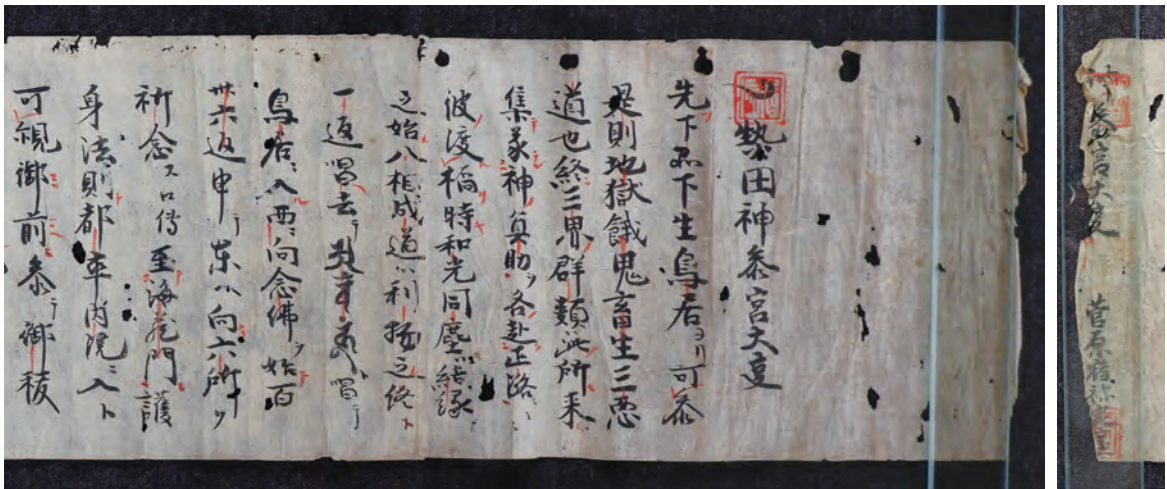 熱田神参宮大事
先下品下生鳥居ヨリ可参
是則地獄餓鬼畜生三悪
道也終三界群類此所来
集蒙神冥助ヲ各赴正路
彼渡橋時和光同塵ハ結縁
之始八相成道ハ利物之終ト
一返唱去テ
鳥居ニ入西ニ向念佛ヲ始百
卅六返申テ東ハ向六所ヲ
祈念ス口傳至海蔵門護
身法則都率内院ニ入ト
可観御前参テ御祓
宮大事 菅原